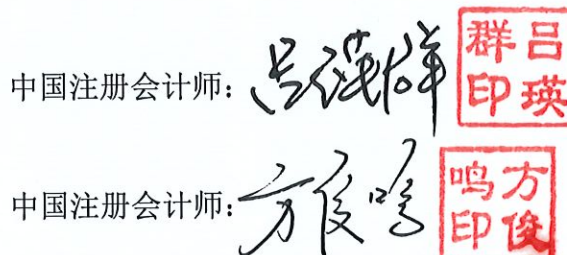 中国注册会计师：吕瑛群 吕瑛群印
中国注册会计师：方俊鸣 方俊鸣印